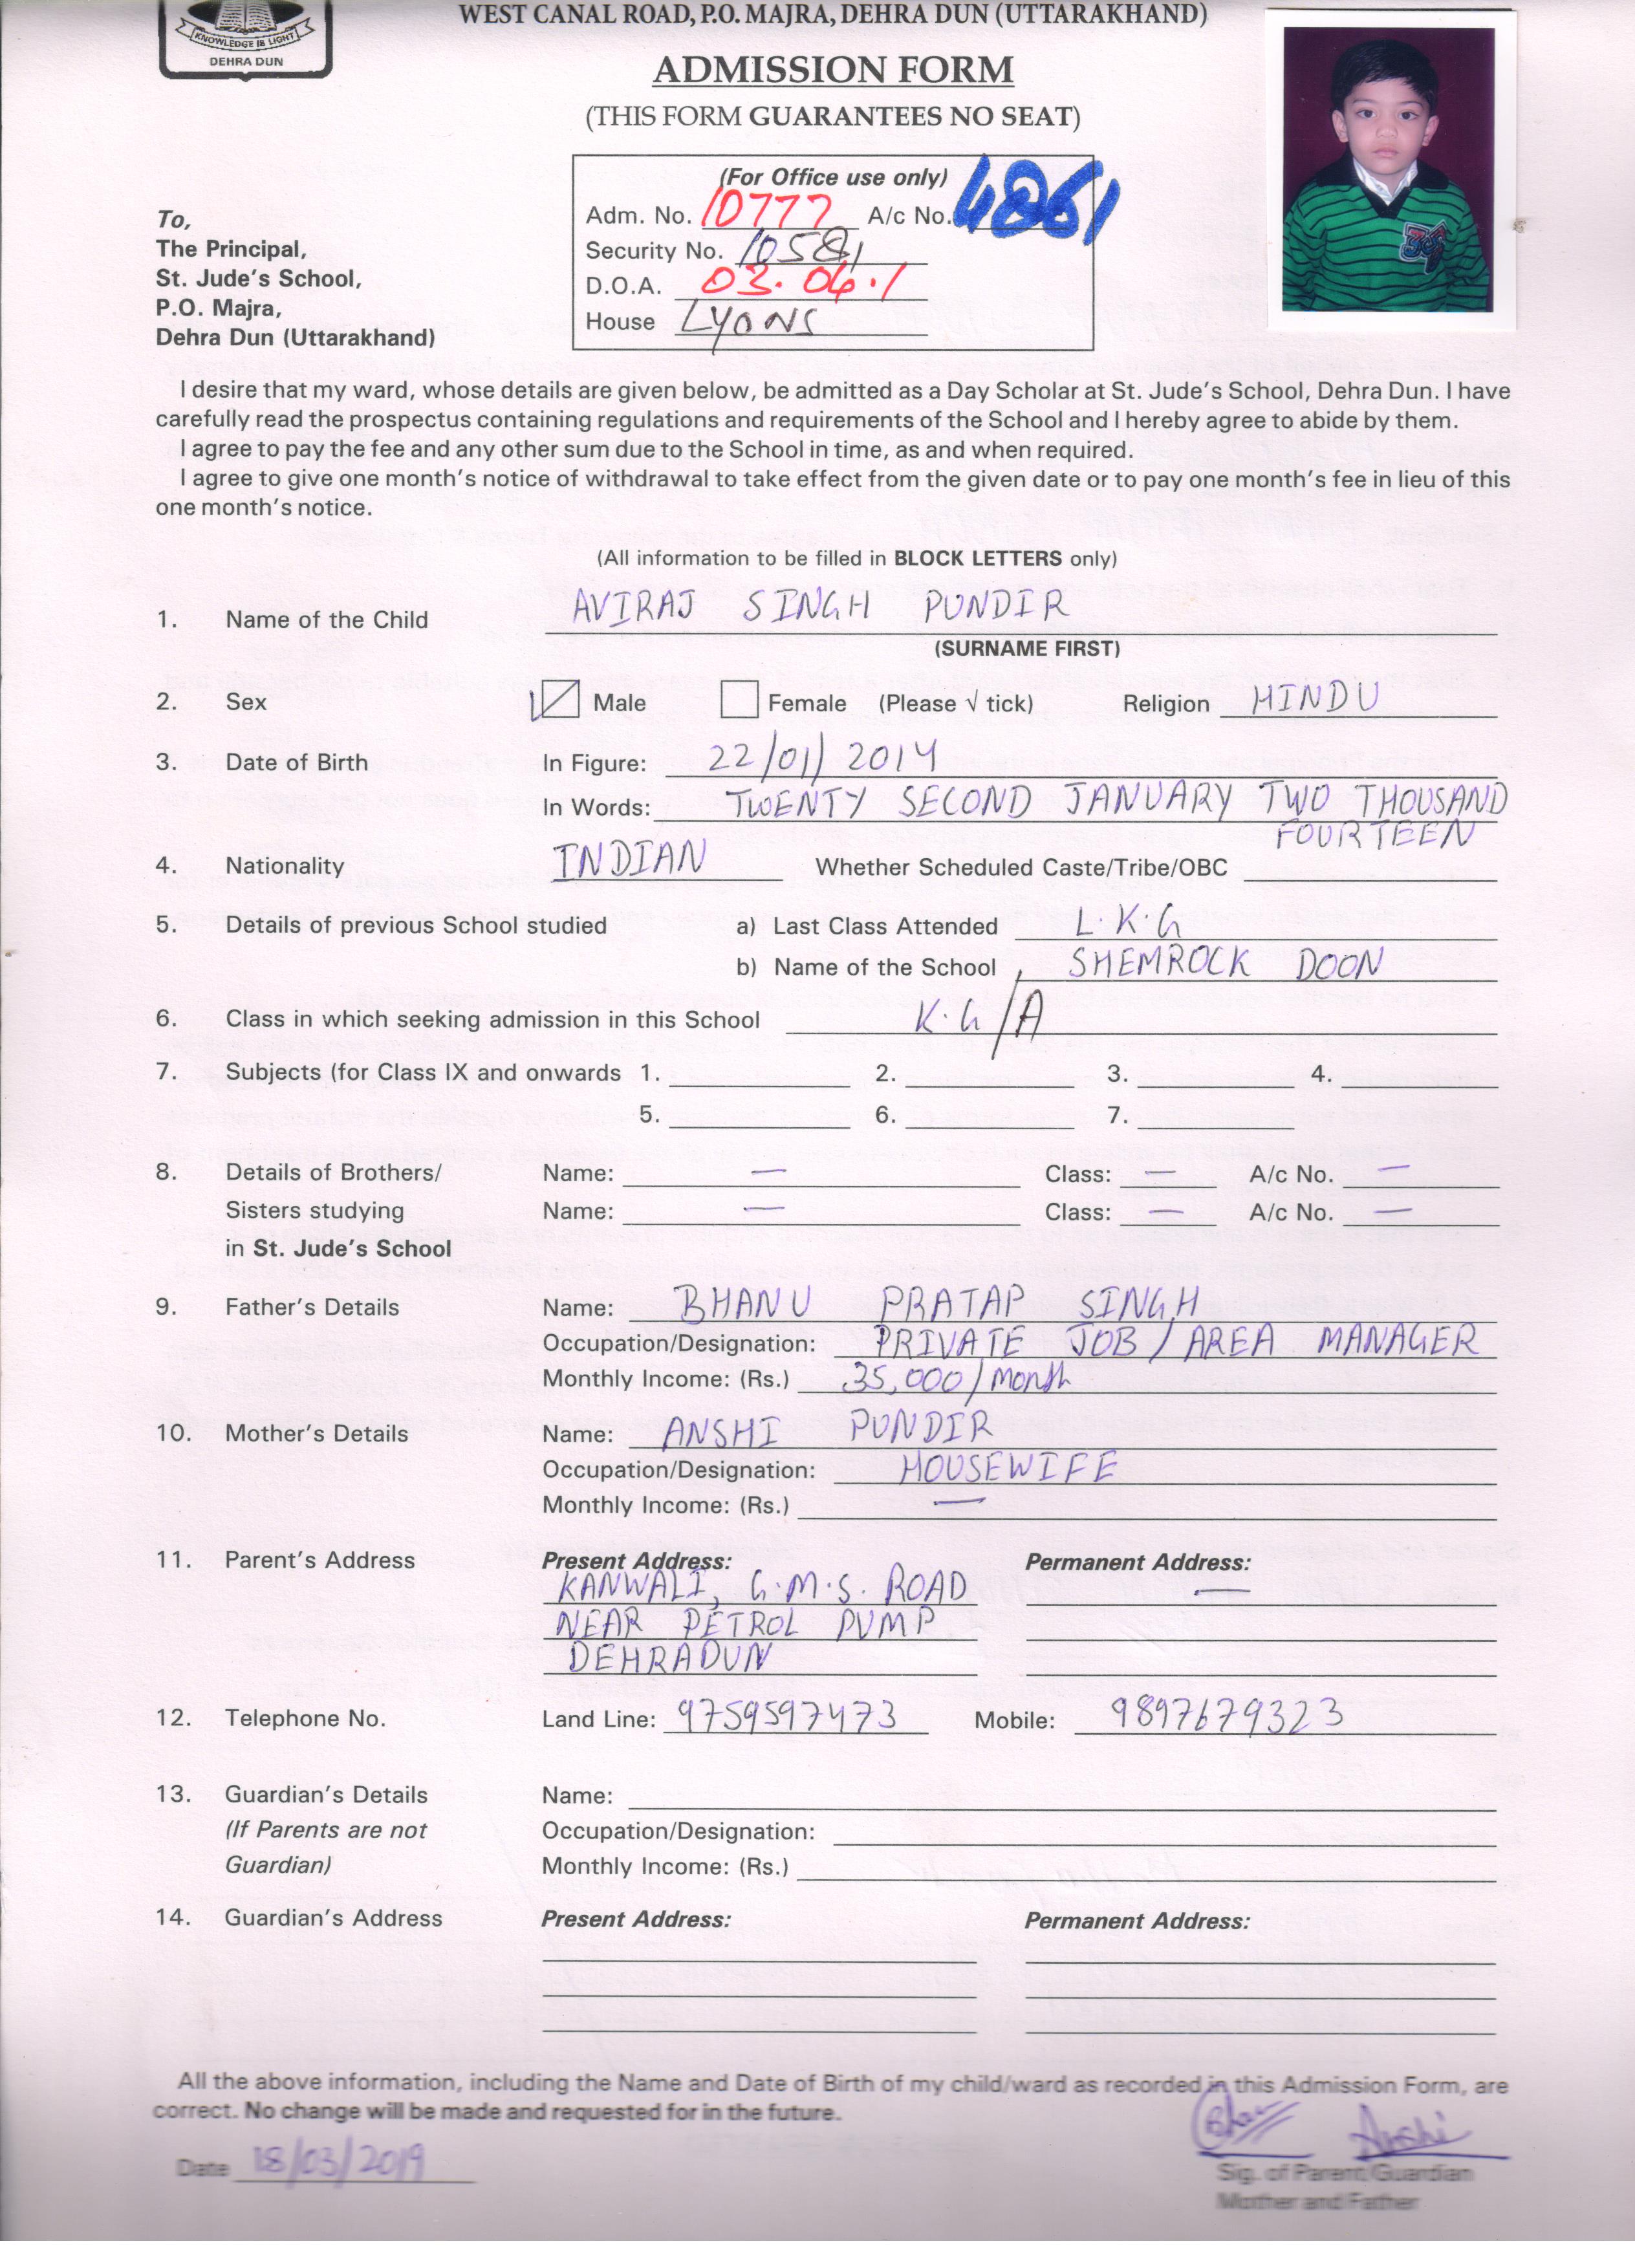 KNOWLEDGE IS LIGHT
DEHRA DUN
WEST CANAL ROAD, P.O. MAJRA, DEHRA DUN (UTTARAKHAND)
ADMISSION FORM
(THIS FORM GUARANTEES NO SEAT)
(For Office use only)
Adm. No. 10777 A/c No. 4861
Security No. 10581
D.O.A. 03.04.1
House LYONS
To,
The Principal,
St. Jude's School,
P.O. Majra,
Dehra Dun (Uttarakhand)
I desire that my ward, whose details are given below, be admitted as a Day Scholar at St. Jude's School, Dehra Dun. I have
carefully read the prospectus containing regulations and requirements of the School and I hereby agree to abide by them.
I agree to pay the fee and any other sum due to the School in time, as and when required.
I agree to give one month's notice of withdrawal to take effect from the given date or to pay one month's fee in lieu of this
one month's notice.
(All information to be filled in BLOCK LETTERS only)
1. Name of the Child AVIRAJ SINGH PUNDIR
(SURNAME FIRST)
2. Sex Male Female (Please √ tick) Religion HINDU
3. Date of Birth In Figure: 22/01/2014
In Words: TWENTY SECOND JANUARY TWO THOUSAND
FOURTEEN
4. Nationality INDIAN Whether Scheduled Caste/Tribe/OBC
5. Details of previous School studied a) Last Class Attended L.K.G
b) Name of the School SHEMROCK DOON
6. Class in which seeking admission in this School K.G/A
7. Subjects (for Class IX and onwards 1. 2. 3. 4.
5. 6. 7.
8. Details of Brothers/ Name: — Class: — A/c No. —
Sisters studying Name: — Class: — A/c No. —
in St. Jude's School
9. Father's Details Name: BHANU PRATAP SINGH
Occupation/Designation: PRIVATE JOB / AREA MANAGER
Monthly Income: (Rs.) 35,000/Month
10. Mother's Details Name: ANSHI PUNDIR
Occupation/Designation: HOUSEWIFE
Monthly Income: (Rs.) —
11. Parent's Address Present Address: Permanent Address:
KANWALI, G.M.S. ROAD —
NEAR PETROL PUMP
DEHRADUN
12. Telephone No. Land Line: 9759597473 Mobile: 9897679323
13. Guardian's Details Name:
(If Parents are not Occupation/Designation:
Guardian) Monthly Income: (Rs.)
14. Guardian's Address Present Address: Permanent Address:
All the above information, including the Name and Date of Birth of my child/ward as recorded in this Admission Form, are
correct. No change will be made and requested for in the future.
Anshi
Date 18/03/2019 Sig. of Parent/Guardian
Mother and Father